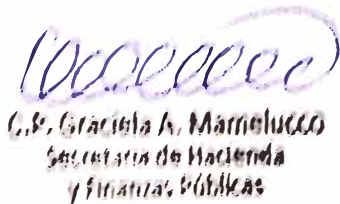 C.P. Graciela A. Mamelucco
Secretaria de Hacienda
y Finanzas Públicas